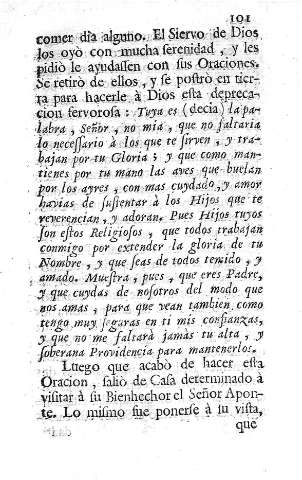 101
comer dia alguno. El Siervo de Dios
los oyò con mucha serenidad, y les
pidiò le ayudassen con sus Oraciones.
Se retirò de ellos, y se postrò en tier-
ra para hacerle à Dios esta depreca-
cion fervorosa: Tuya es (decia) la pa-
labra, Señor, no mia, que no faltaria
lo necessario à los que te sirven, y tra-
bajan por tu Gloria; y que como man-
tienes por tu mano las aves que buelan
por los ayres, con mas cuydado, y amor
havias de sustentar à los Hijos que te
reverencian, y adoran. Pues Hijos tuyos
son estos Religiosos, que todos trabajan
conmigo por extender la gloria de tu
Nombre, y que seas de todos temido, y
amado. Muestra, pues, que eres Padre,
y que cuydas de nosotros del modo que
nos amas, para que vean tambien como
tengo muy seguras en ti mis confianzas,
y que no me faltarà jamàs tu alta, y
soberana Providencia para mantenerlos.
Luego que acabò de hacer esta
Oracion, saliò de Casa determinado à
visitar à su Bienhechor el Señor Apon-
te. Lo mismo fue ponerse à su vista,
que